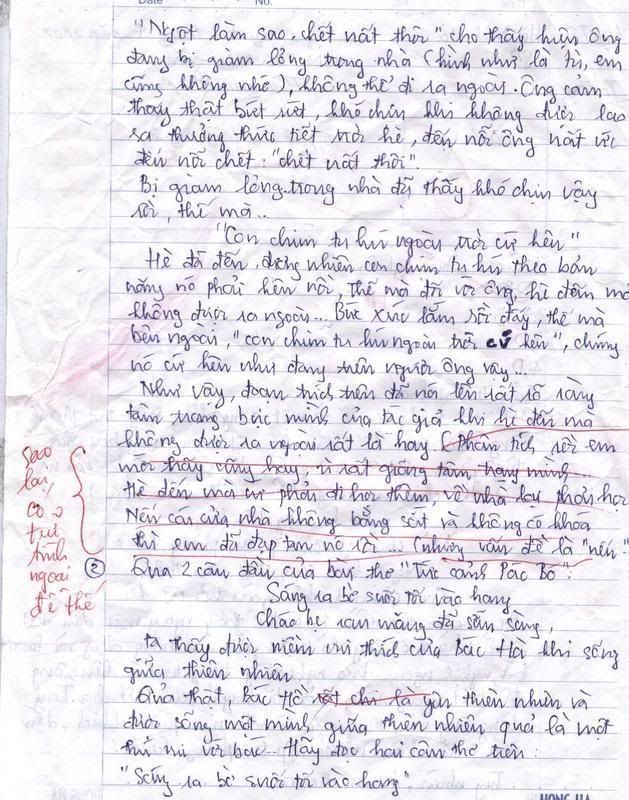 DATE
NO.
"Ngột làm sao, chết uất thôi" cho thấy hiện ông
đang bị giam lỏng trong nhà (hình như là tù, em
cũng không nhớ), không thể đi ra ngoài. Ông cảm
thấy thật bứt rứt, khó chịu khi không được lao
ra thưởng thức tiết trời hè, đến nỗi ông uất ức
đến nỗi chết: "chết uất thôi".
Bị giam lỏng trong nhà đã thấy khó chịu vậy
rồi, thế mà...
"Con chim tu hú ngoài trời cứ kêu"
Hè đã đến, đương nhiên con chim tu hú theo bản
năng nó phải kêu rồi, thế mà đối với ông, hè đến mà
không được ra ngoài... Bức xúc lắm rồi đấy, thế mà
bên ngoài, "con chim tu hú ngoài trời cứ kêu", chúng
nó cứ kêu như đang trêu ngươi ông vậy...
Như vậy, đoạn trích trên đã nói lên rất rõ ràng
tâm trạng bực mình của tác giả khi hè đến mà
không được ra ngoài rất là hay (Phân tích rồi em
mới thấy cũng hay, vì rất giống tâm trạng mình...
Hè đến mà cứ phải đi học thêm, về nhà lại phải học
Nếu cái cửa nhà không bằng sắt và không có khóa
thì em đã đạp tan nó rồi... (nhưng vấn đề là "nếu"...
sao
lại
có
tự
tình
ngoài
đề thế
2
Qua 2 câu đầu của bài thơ "Tức cảnh Pác Bó":
Sáng ra bờ suối tối vào hang
Cháo bẹ rau măng đã sẵn sàng,
ta thấy được niềm vui thích của Bác Hồ khi sống
giữa thiên nhiên.
Quả thật, Bác Hồ rất chi là yêu thiên nhiên và
được sống một mình giữa thiên nhiên quả là một
thú vui với bác... Hãy đọc hai câu thơ trên:
"Sáng ra bờ suối tối vào hang"
HONG HA